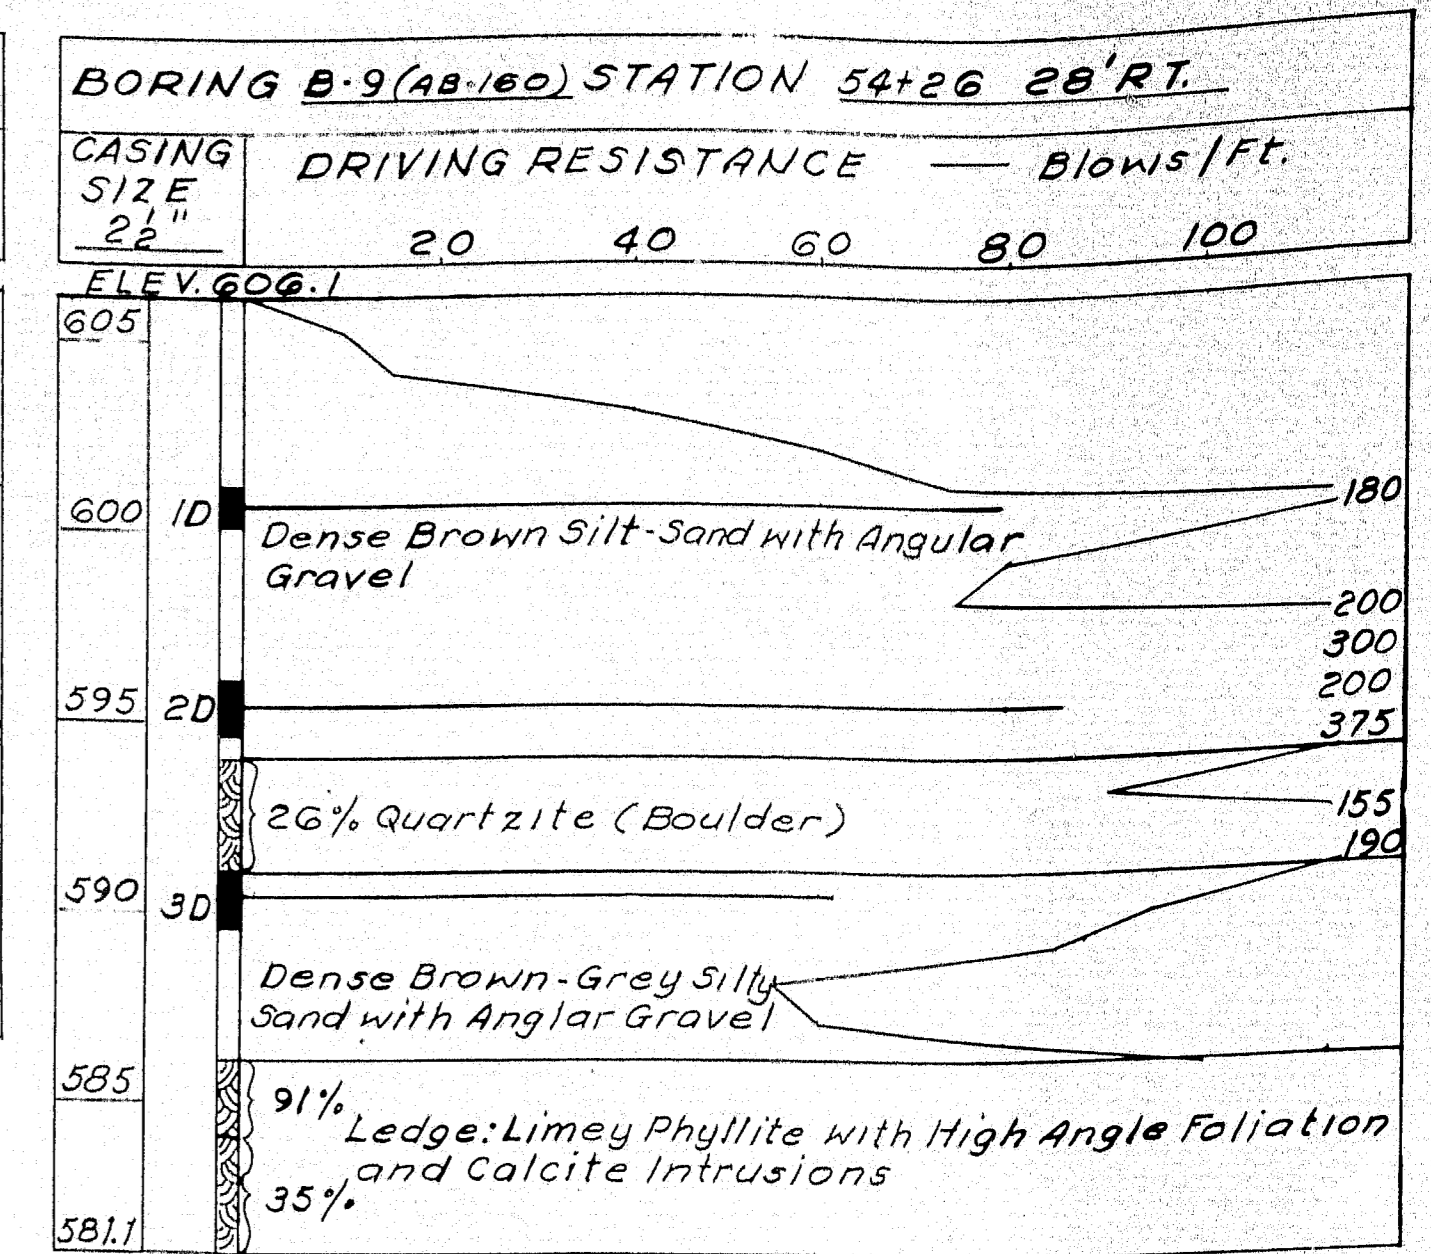 BORING B-9(AB-160) STATION 54+26 28' RT.
CASING
SIZE
2½"
DRIVING RESISTANCE — Blows/Ft.
20 40 60 80 100
ELEV. 606.1
605
180
600 1D
Dense Brown Silt-Sand with Angular
Gravel
200
300
200
595 2D
375
26% Quartzite (Boulder)
155
190
590 3D
Dense Brown-Grey Silty
Sand with Anglar Gravel
585
91%
Ledge: Limey Phyllite with High Angle Foliation
and Calcite Intrusions
35%
581.1